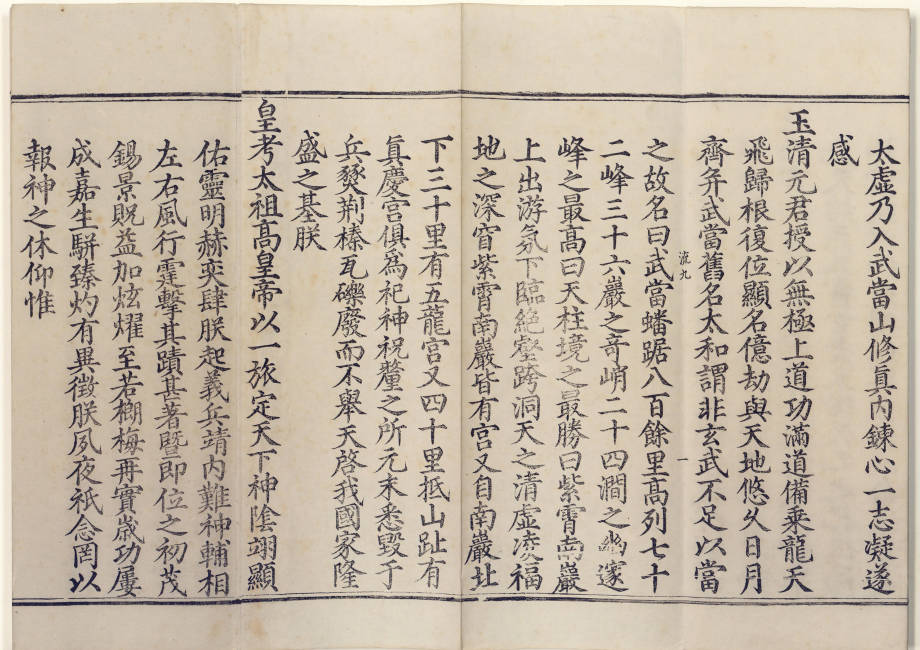 太虛乃入武當山修眞内鍊心一志凝遂
感
玉清元君授以無極上道功滿道備乘龍天
飛歸根復位顯名億劫與天地悠久日月
齊并武當舊名太和謂非玄武不足以當
流九
一
之故名曰武當蟠踞八百餘里高列七十
二峰三十六巖之竒峭二十四澗之幽邃
峰之最高曰天柱境之最勝曰紫霄南巖
上出游氛下臨絶壑跨洞天之清虛凌福
地之深窅紫霄南巖皆有宫又自南巖北
下三十里有五龍宫又四十里抵山趾有
眞慶宫俱爲祀神祝釐之所元末悉毁于
兵燹荆榛瓦礫廢而不舉天啓我國家隆
盛之基朕
皇考太祖高皇帝以一旅定天下神陰翊顯
佑靈明赫奕肆朕起義兵靖内難神輔相
左右風行霆擊其蹟甚著暨即位之初茂
錫景貺益加炫燿至若榔梅再實嵗功屢
成嘉生駢臻灼有異徵朕夙夜祇念罔以
報神之休仰惟